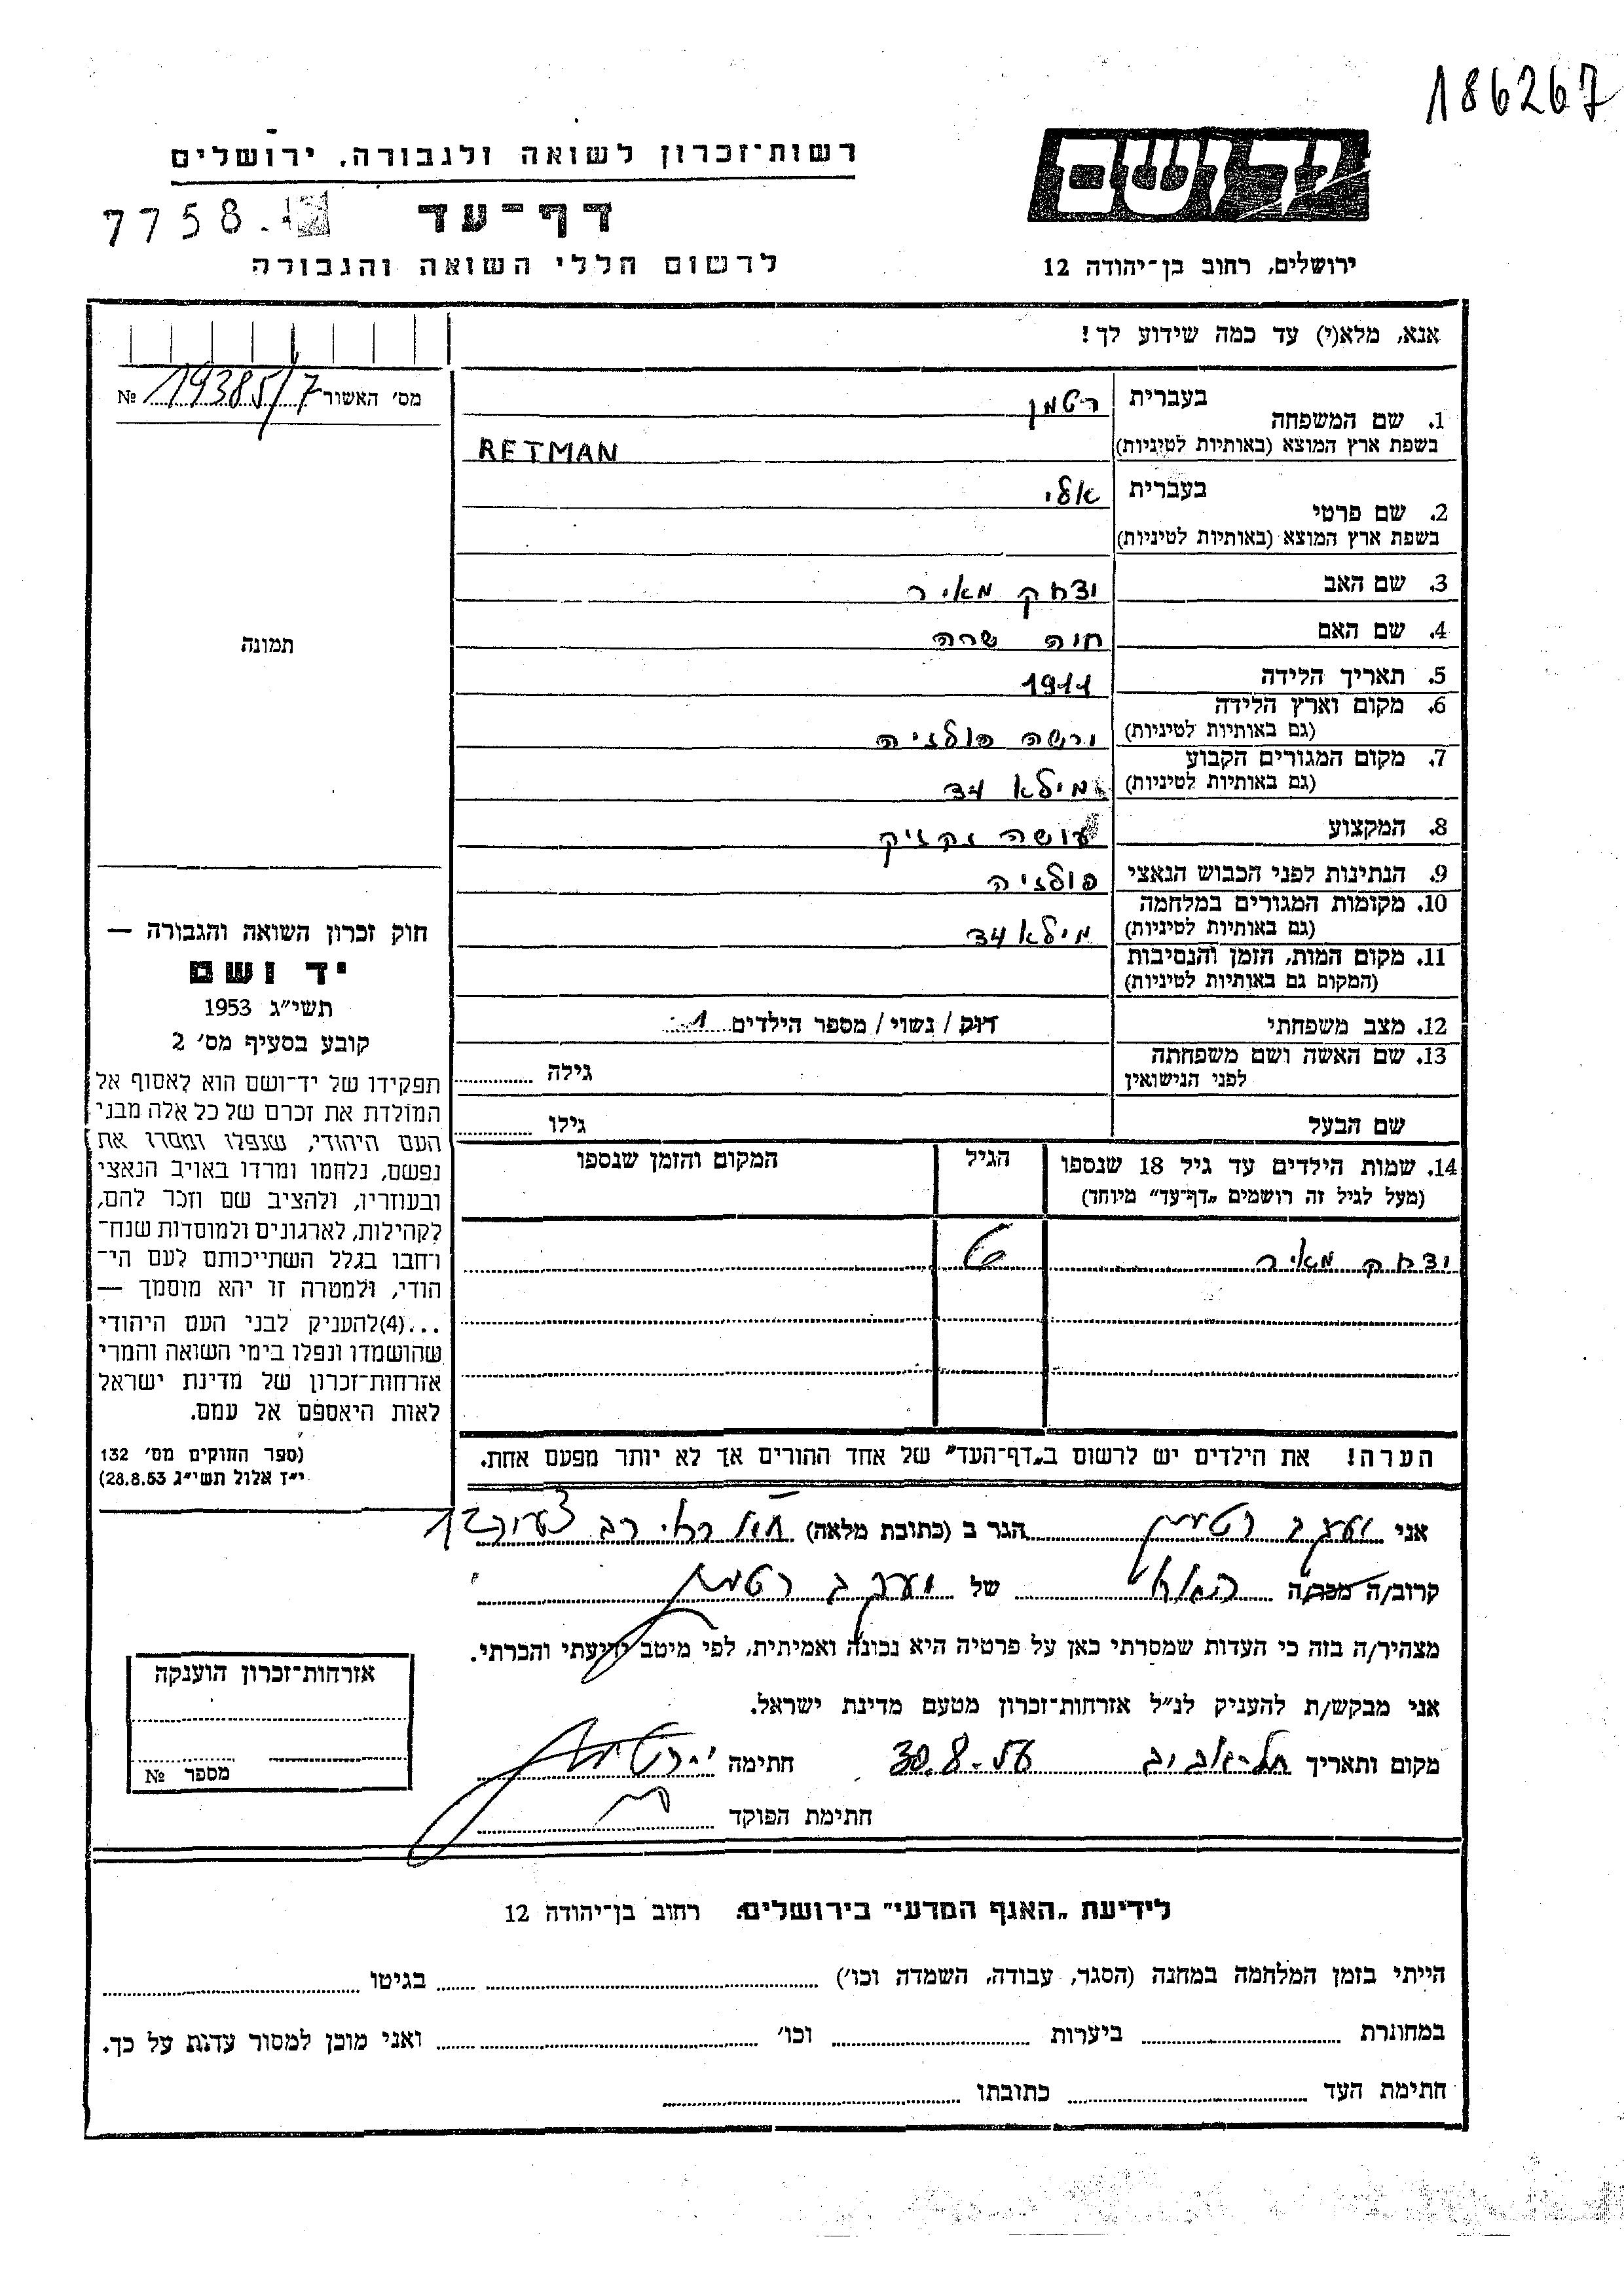 186267
יד ושם
ירושלים, רחוב בן־יהודה 12
רשות־זכרון לשואה ולגבורה, ירושלים
דף־עד
7758
לרשום חללי השואה והגבורה
אנא, מלא(י) עד כמה שידוע לך!
מס׳ האשור 19385/7 №
תמונה
חוק זכרון השואה והגבורה —
יד ושם
תשי״ג 1953
קובע בסעיף מס׳ 2
תפקידו של יד־ושם הוא לאסוף אל
המולדת את זכרם של כל אלה מבני
העם היהודי, שנפלו ומסרו את
נפשם, נלחמו ומרדו באויב הנאצי
ובעוזריו, ולהציב שם וזכר להם,
לקהילות, לארגונים ולמוסדות שנח־
רחבו בגלל השתייכותם לעם הי־
הודי, ולמטרה זו יהא מוסמך —
...(4)להעניק לבני העם היהודי
שהושמדו ונפלו בימי השואה והמרי
אזרחות־זכרון של מדינת ישראל
לאות היאספם אל עמם.
(ספר החוקים מס׳ 132
י״ז אלול תשי״ג 28.8.53)
1. שם המשפחה בעברית רטמן
בשפת ארץ המוצא (באותיות לטיניות) RETMAN
2. שם פרטי בעברית אלי
בשפת ארץ המוצא (באותיות לטיניות)
3. שם האב יצחק מאיר
4. שם האם חיה שרה
5. תאריך הלידה 1911
6. מקום וארץ הלידה
(גם באותיות לטיניות) ורשה פולניה
7. מקום המגורים הקבוע
(גם באותיות לטיניות) מילא 34
8. המקצוע עושה נקניק
9. הנתינות לפני הכבוש הנאצי פולניה
10. מקומות המגורים במלחמה
(גם באותיות לטיניות) מילא 34
11. מקום המות, הזמן והנסיבות
(המקום גם באותיות לטיניות)
12. מצב משפחתי רווק / נשוי / מספר הילדים 1
13. שם האשה ושם משפחתה
לפני הנישואין גילה
שם הבעל גילו
14. שמות הילדים עד גיל 18 שנספו הגיל המקום והזמן שנספו
(מעל לגיל זה רושמים „דף־עד״ מיוחד)
יצחק מאיר 6
הערה! את הילדים יש לרשום ב„דף־העד״ של אחד ההורים אך לא יותר מפעם אחת.
אני יעקב רטמן הגר ב (כתובת מלאה) 12
קרוב/ה מכר/ה של יעקב רטמן
מצהיר/ה בזה כי העדות שמסרתי כאן על פרטיה היא נכונה ואמיתית, לפי מיטב ידיעתי והכרתי.
אני מבקש/ת להעניק לנ״ל אזרחות־זכרון מטעם מדינת ישראל.
מקום ותאריך תל־אביב 30.8.56 חתימה
חתימת הפוקד
אזרחות־זכרון הוענקה
מספר №
לידיעת „האגף המדעי״ בירושלים, רחוב בן־יהודה 12
הייתי בזמן המלחמה במחנה (הסגר, עבודה, השמדה וכו׳) בגיטו
במחתרת ביערות וכו׳ ואני מוכן למסור עדות על כך.
חתימת העד כתובתו